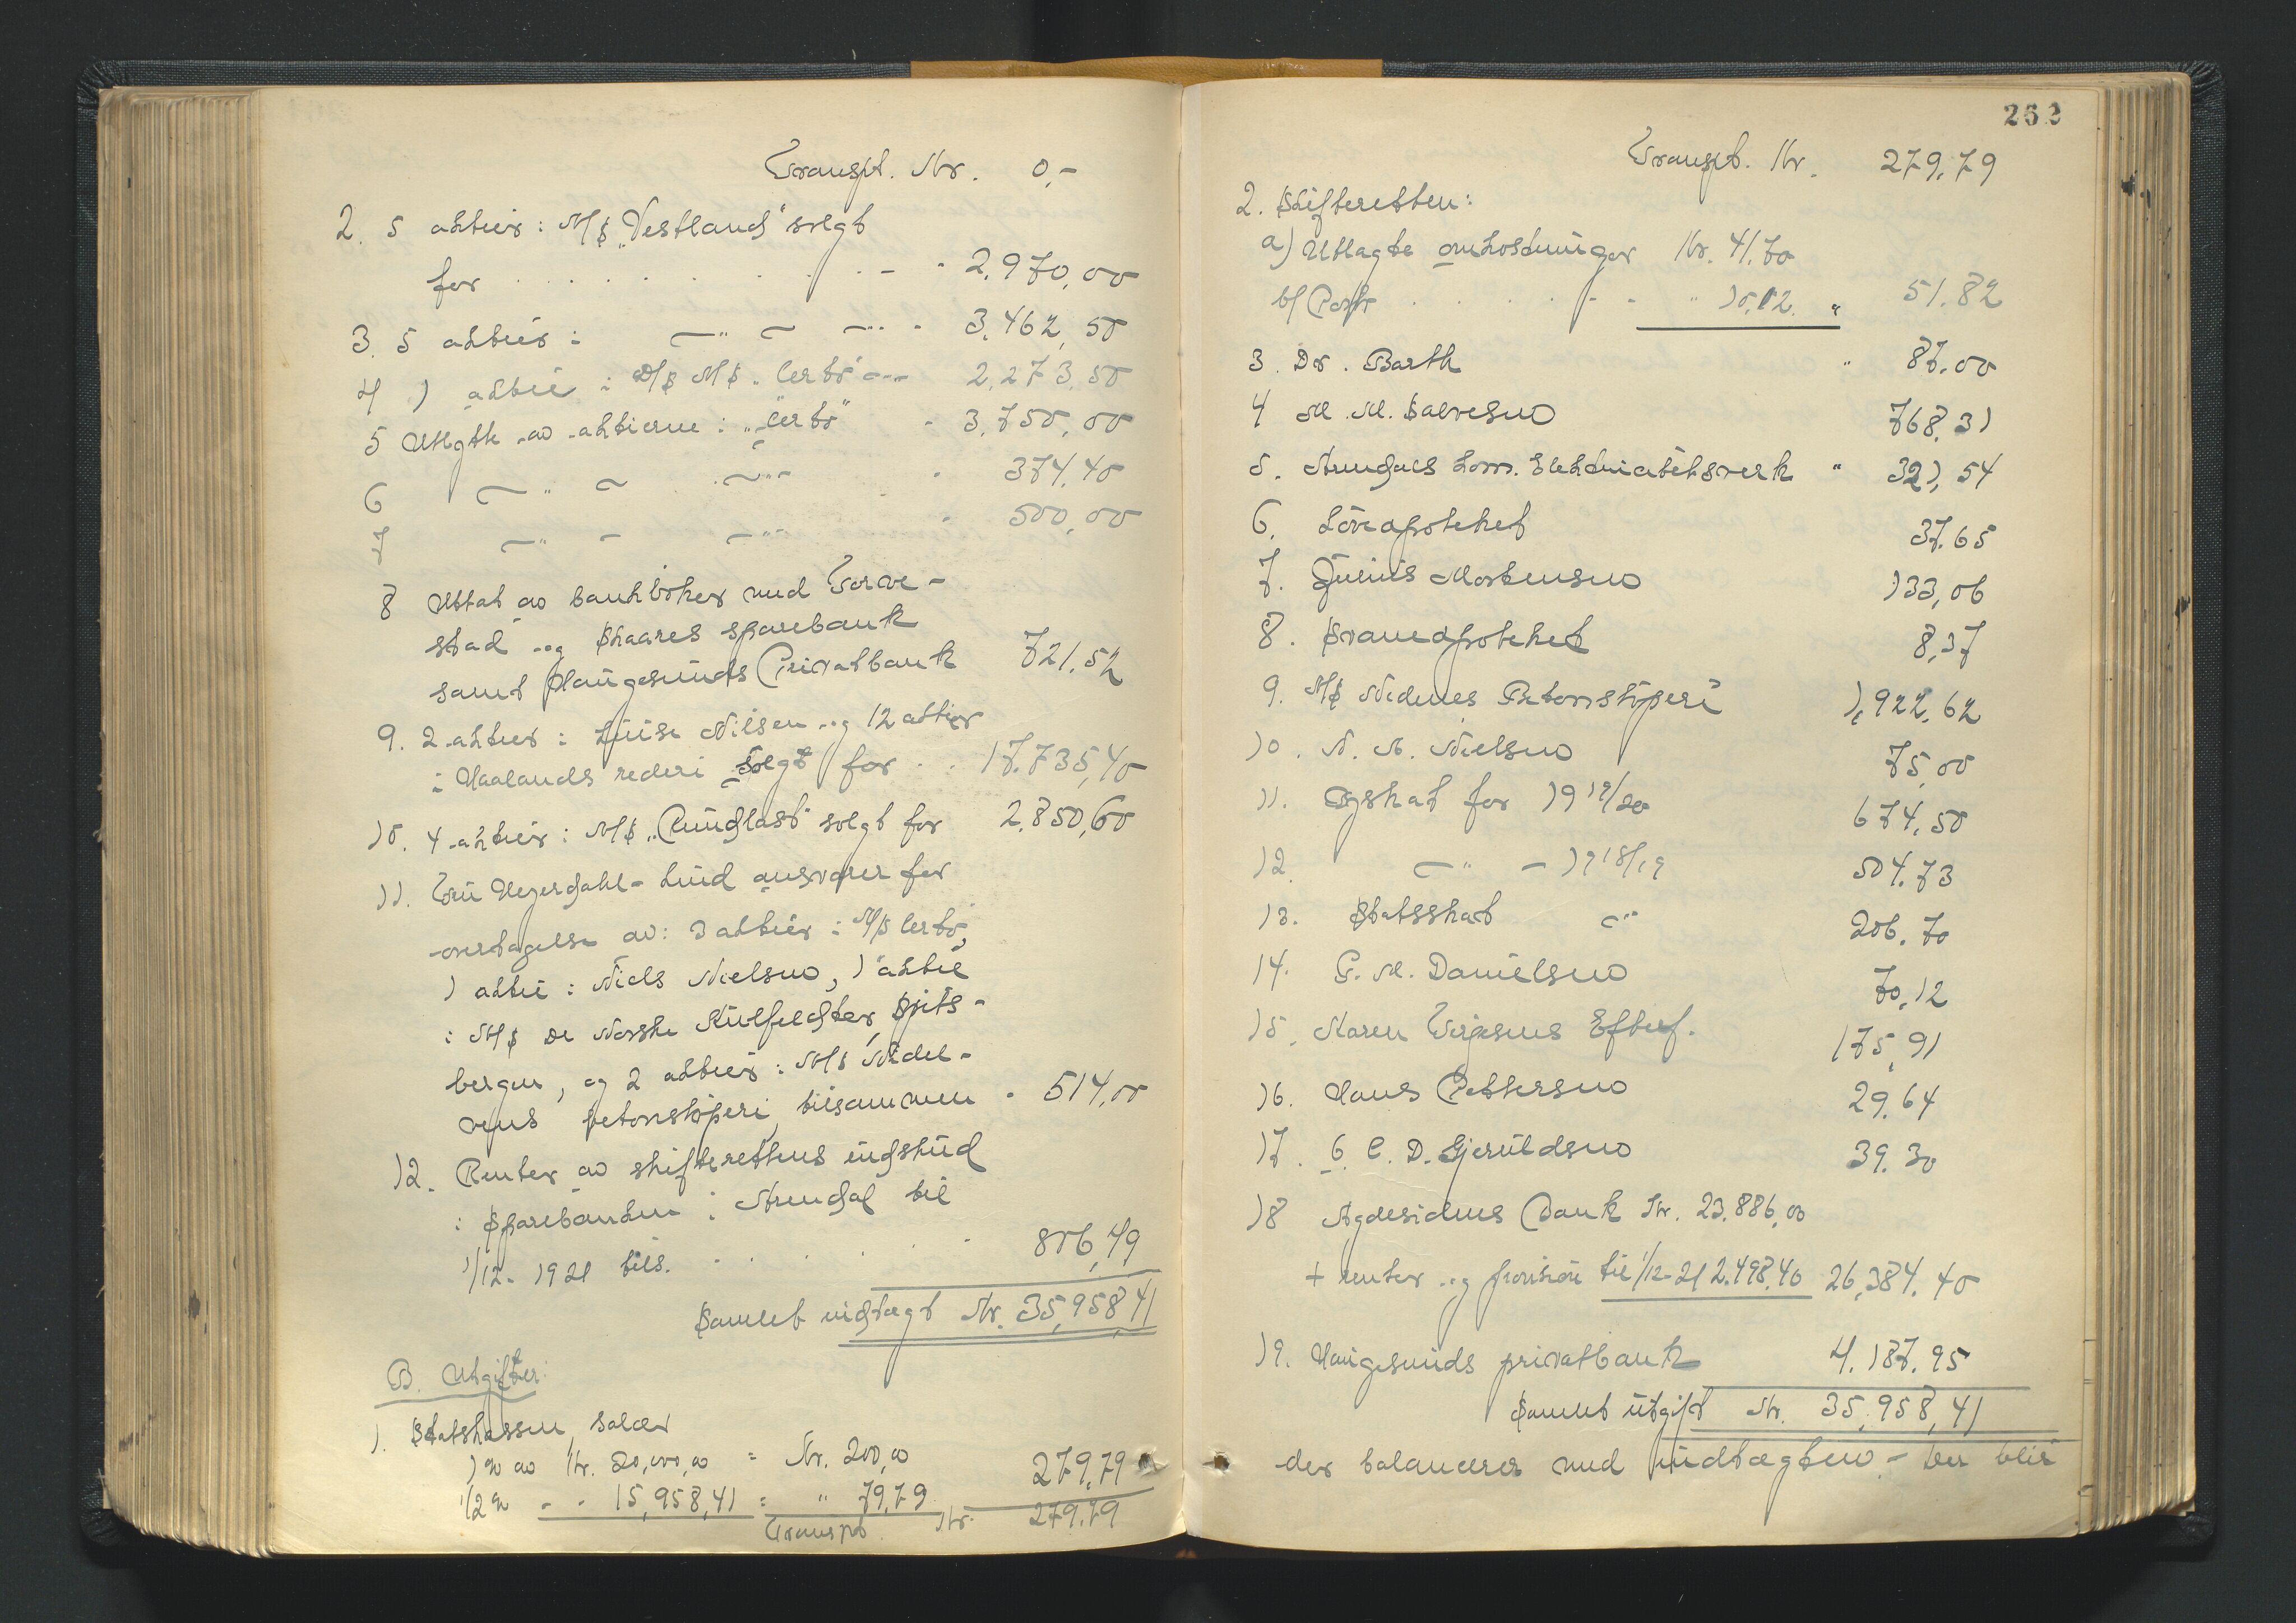 Transpt. Kr. 0,-
2. 5 aktier i A/S "Vestland" solgt
for . . . . . . . . - - 2.970,00
3. 5 aktier i —"— —"— - 3.462,50
4 1 aktie i D/S A/S "Certo" —"— 2.273,50
5 Utbytte av aktierne i "Certo" - 3.750,00
6 —"— —"— - 374,40
7 —"— —"— - 500,00
8 Uttat av bankböker med Torve-
stad og Skaares sparebank
samt Haugesunds Privatbank 721,52
9. 2 aktier i Luise Nilsen og 12 aktier
i Haalands rederi solgt for . . 17.735,40
10. 4 aktier i A/S "Rundlast" solgt for 2.850,60
11. Fru Heyerdahl-Lund ansvarer for
overtagelse av: 3 aktier i A/S Certo,
1 aktie i Niels Nielsen, 1 aktie
i A/S De Norske Kulfeldter, Spits-
bergen, og 2 aktier i A/S Nede-
nes betonstöperi, tilsammen - 514,00
12. Renter av skifterettens indskud
i Sparebanken i Arendal til
1/12-1921 tils. . . . . . - 806,49
Samlet indtægt Kr. 35,958,41
B. Utgifter:
1. Statskassen, salær
1% av Kr. 20,000,00 = Kr. 200,00
1/2% - - 15,958,41 = " 79,79 279,79
Transpt. Kr. 279.79
262
Transpt. Kr. 279,79
2. Skifteretten:
a) Utlagte omkostninger Kr. 41,70
b) Porto . . . . - - " 10.12. " 51.82
3. Dr. Barth " 87.00
4 M. M. Salvesen 768.31
5. Arendals kom. Elektricitetsverk " 321,54
6. Löveapoteket 37.65
7. Julius Mortensen 133,06
8. Svaneapoteket 8,37
9. A/S Nedenes Betonstöperi 1,922,62
10. N. A. Nielsen 75,00
11. Byskat for 1919/20 674,50
12. —"— - 1918/19 504.73
13. Statsskat —"— 206.70
14. G. M. Danielsen 70,12
15. Karen Terjesens Efterf. 175,91
16. Hans Pettersen 29.64
17. G. C. D. Gjeruldsen 39.30
18 Agdesidens Bank Kr. 23.886,00
+ renter og provision til 1/12-21 2.498.40 26,384.40
19. Haugesunds privatbank 4.187.95
Samlet utgift Kr. 35,958,41
der balancerer med indtægten. - Der blir